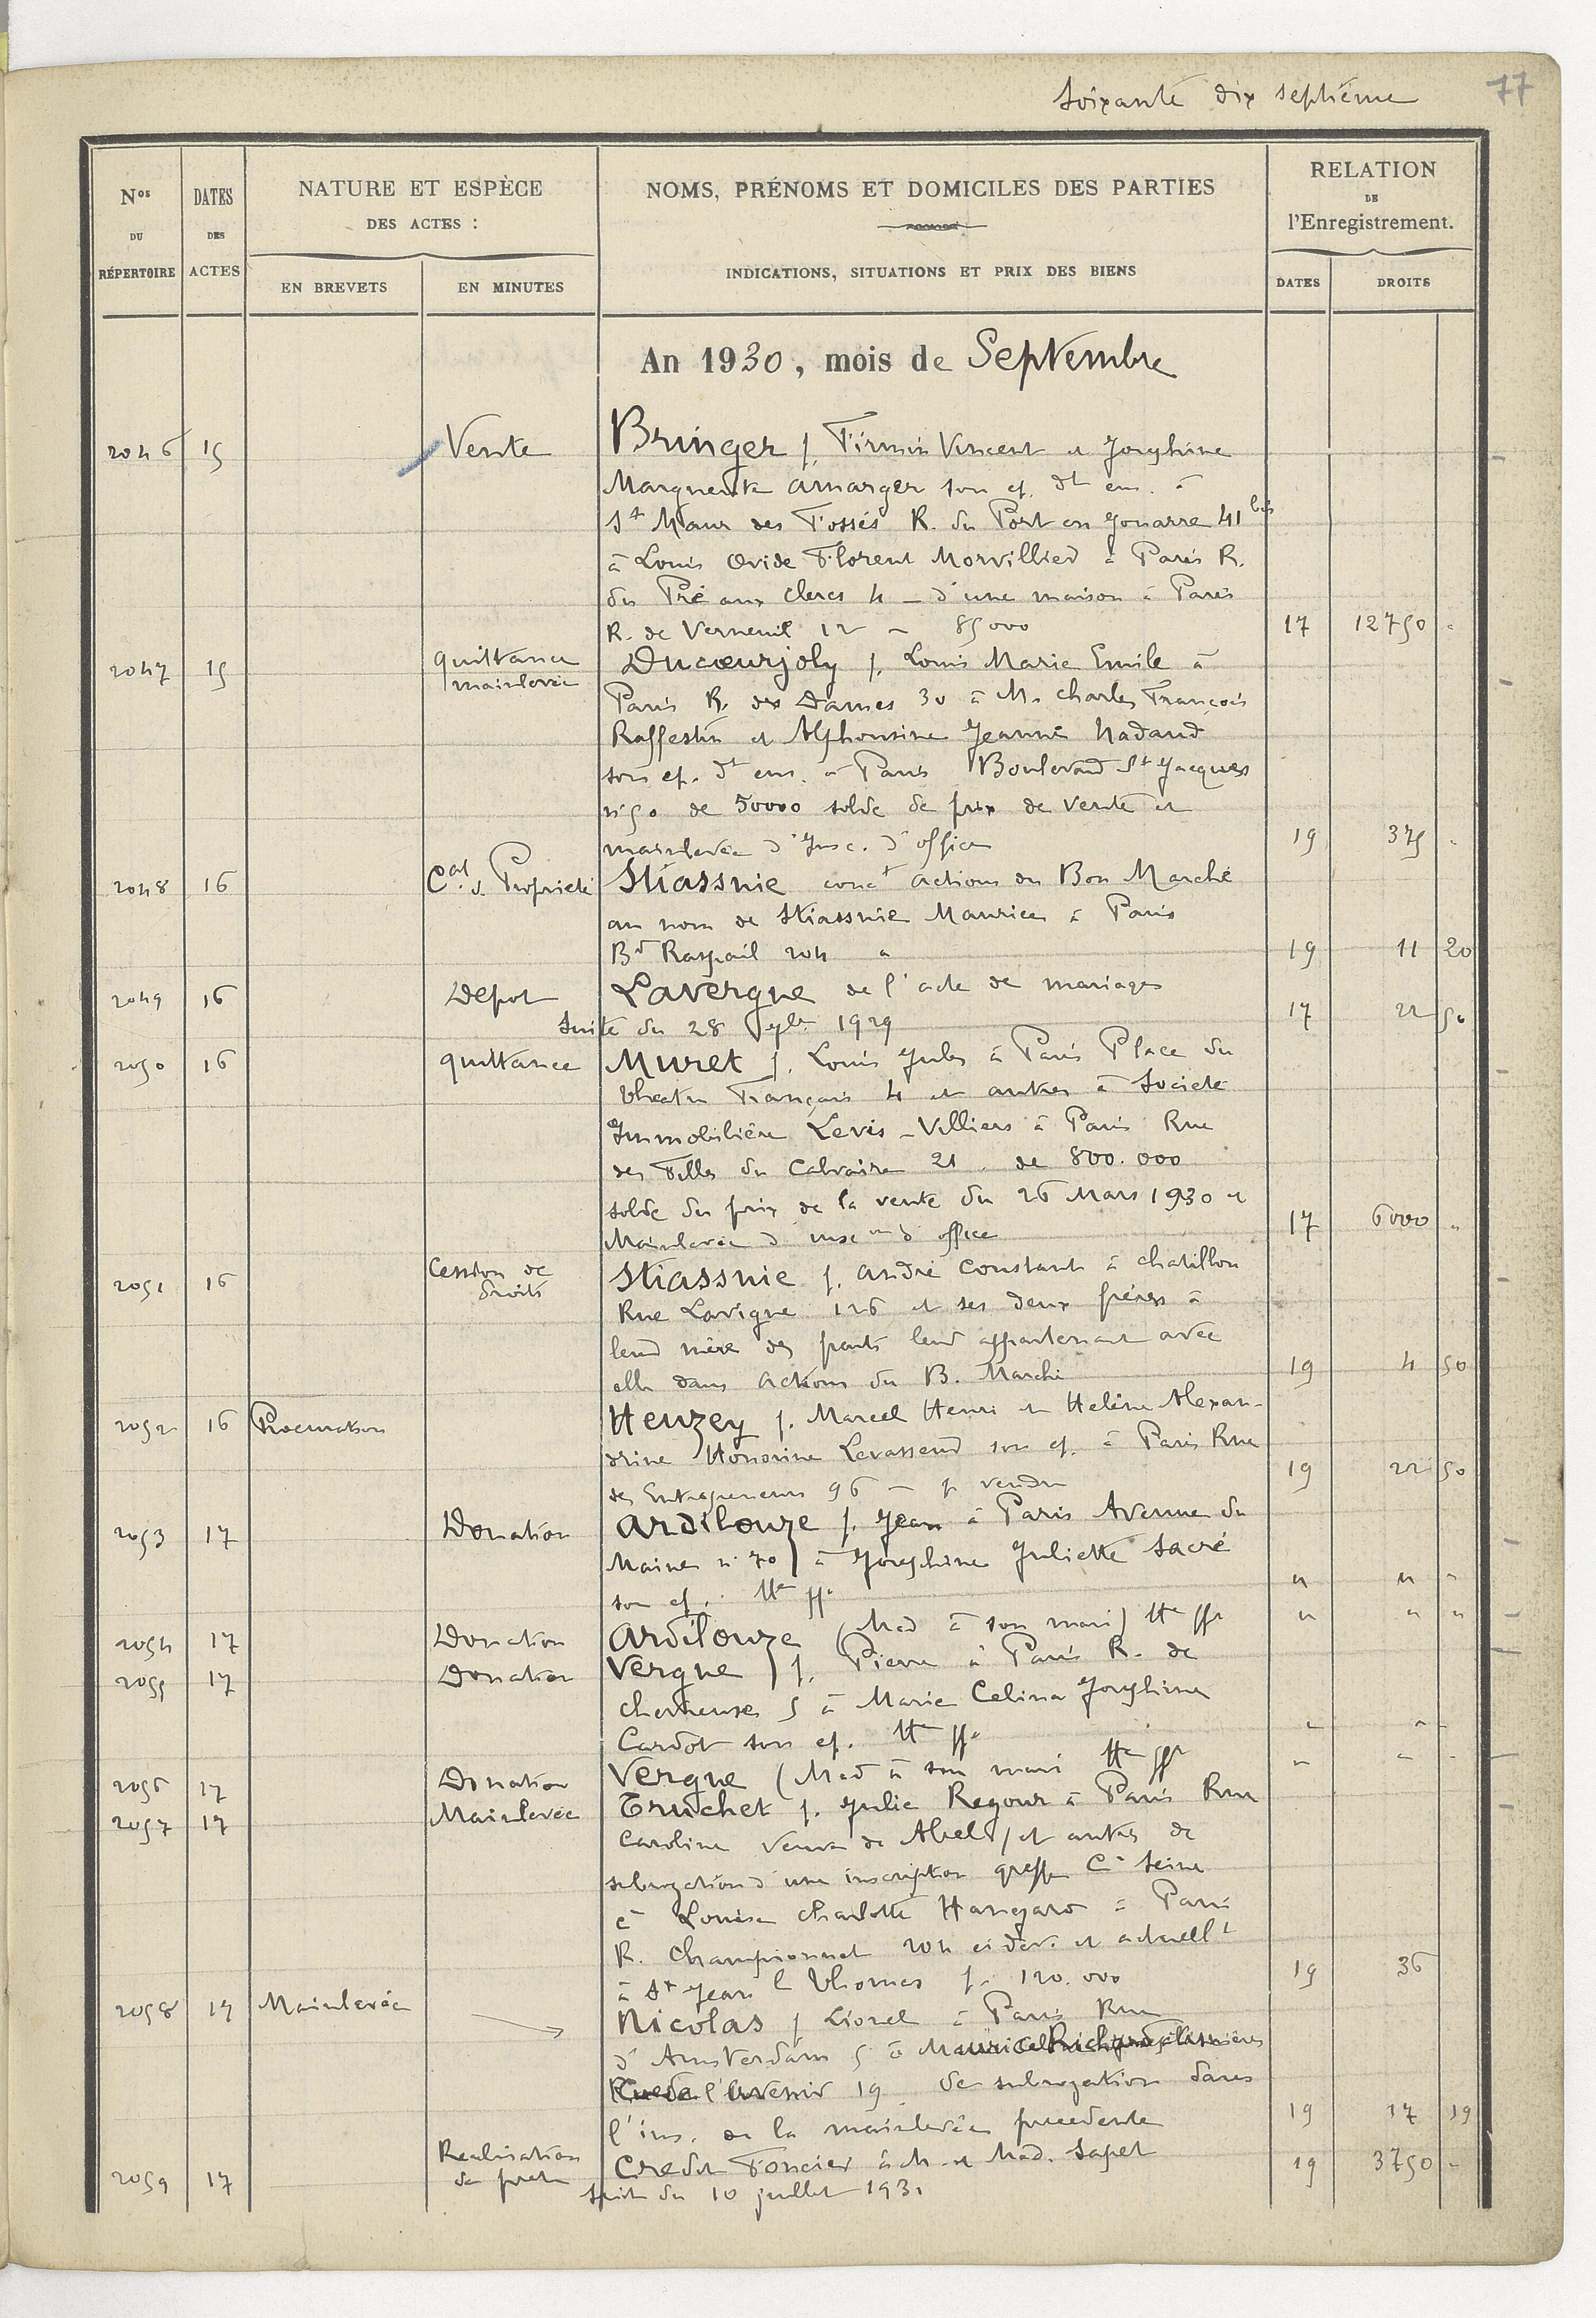 Soixante dix septième 77
Nos DU RÉPERTOIRE
DATES DES ACTES
NATURE ET ESPÈCE
DES ACTES :
EN BREVETS
EN MINUTES
NOMS, PRÉNOMS ET DOMICILES DES PARTIES
INDICATIONS, SITUATIONS ET PRIX DES BIENS
RELATION
DE
l'Enregistrement.
DATES
DROITS
An 1930, mois de Septembre
2046 15 Vente Bringer /. Firmin Vincent et Josephine
Marguerite Amarger son ep. dt ens. à
St Maur des Fossés R. du Port en Gouarre 41 bis
à Louis Ovide Florent Morvillied à Paris R.
du Pré aux clercs 4 - d'une maison à Paris
R. de Verneuil 12 - 85000 17 12750 "
2047 15 quittance mainlevée Ducœurjoly /. Louis Marie Emile à
Paris R. des Dames 30 à M. Charles François
Raffestin et Alphonsine Jeanne Nadaud
son ep. dt ens. à Paris Boulevard St Jacques
n° 50 de 50000 solde de prix de vente et
mainlevée d'Insc. d'office 19 375 "
2048 16 Cat d. Propriété Stiassnie conct actions du Bon Marché
au nom de Stiassnie Maurice à Paris
Bd Raspail 204 " 19 11 20
2049 16 Depot Lavergne de l'acte de mariage
Suite du 28 1929 17 22 50
2050 16 quittance Muret /. Louis Jules à Paris Place du
theatre Français 4 et autres à Societé
Immobilière Levis-Villiers à Paris Rue
des Filles du Calvaire 21 de 800.000
solde du prix de la vente du 26 Mars 1930 et
Mainlevée d'inscon d'office 17 6000 "
2051 16 Cession de droits Stiassnie /. andré Constant à chatillon
Rue Lavigne 126 et ses deux frères à
leur mère des parts leur appartenant avec
elle dans actions du B. Marché 19 4 50
2052 16 Procuration Heuzey /. Marcel Henri et Helène Alexan-
drine Honorine Levasseur son ep. à Paris Rue
des Entrepreneurs 96 - p. vendre 19 22 50
2053 17 Donation Ardilouze /. Jean à Paris Avenue du
Maine n° 70) à Josephine Juliette Sacré
son ep. " " "
2054 17 Donation Ardilouze (Mad à son mari) " " "
2055 17 Donation Vergne) /. Pierre à Paris R. de
Chevreuse 5 à Marie Celina Josephine
Cardot son ep. " "
2056 17 Donation Vergne (Mad à son mari " " "
2057 17 Mainlevée Truchet /. Julie Regour à Paris Rue
Caroline veuve de Abel) et autres de
subrogation d'une inscription greffe Ce Seine
à Louise Charlotte Hangard à Paris
R. Championnet 204 ci dev. et actuellt
à St Jean l Thomas p. 120.000 19 36
2058 17 Mainlevée Nicolas /. Lionel à Paris Rue
d'Amsterdam 5 à Maurice Richard
l'avenir 19 de subrogation dans
l'ins. de la mainlevée precedente 19 17 19
2059 17 Realisation de pret Credit Foncier à M. et Mad. Sapet 19 3750 "
Suite du 10 juillet 1931